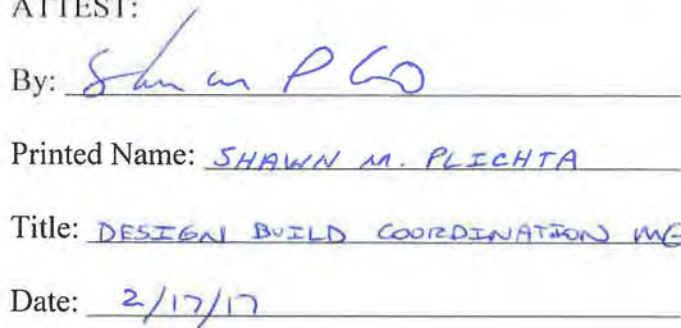 ATTEST:
By:
Printed Name: SHAWN M. PLICHTA
Title: DESIGN BUILD COORDINATION MG
Date: 2/17/17